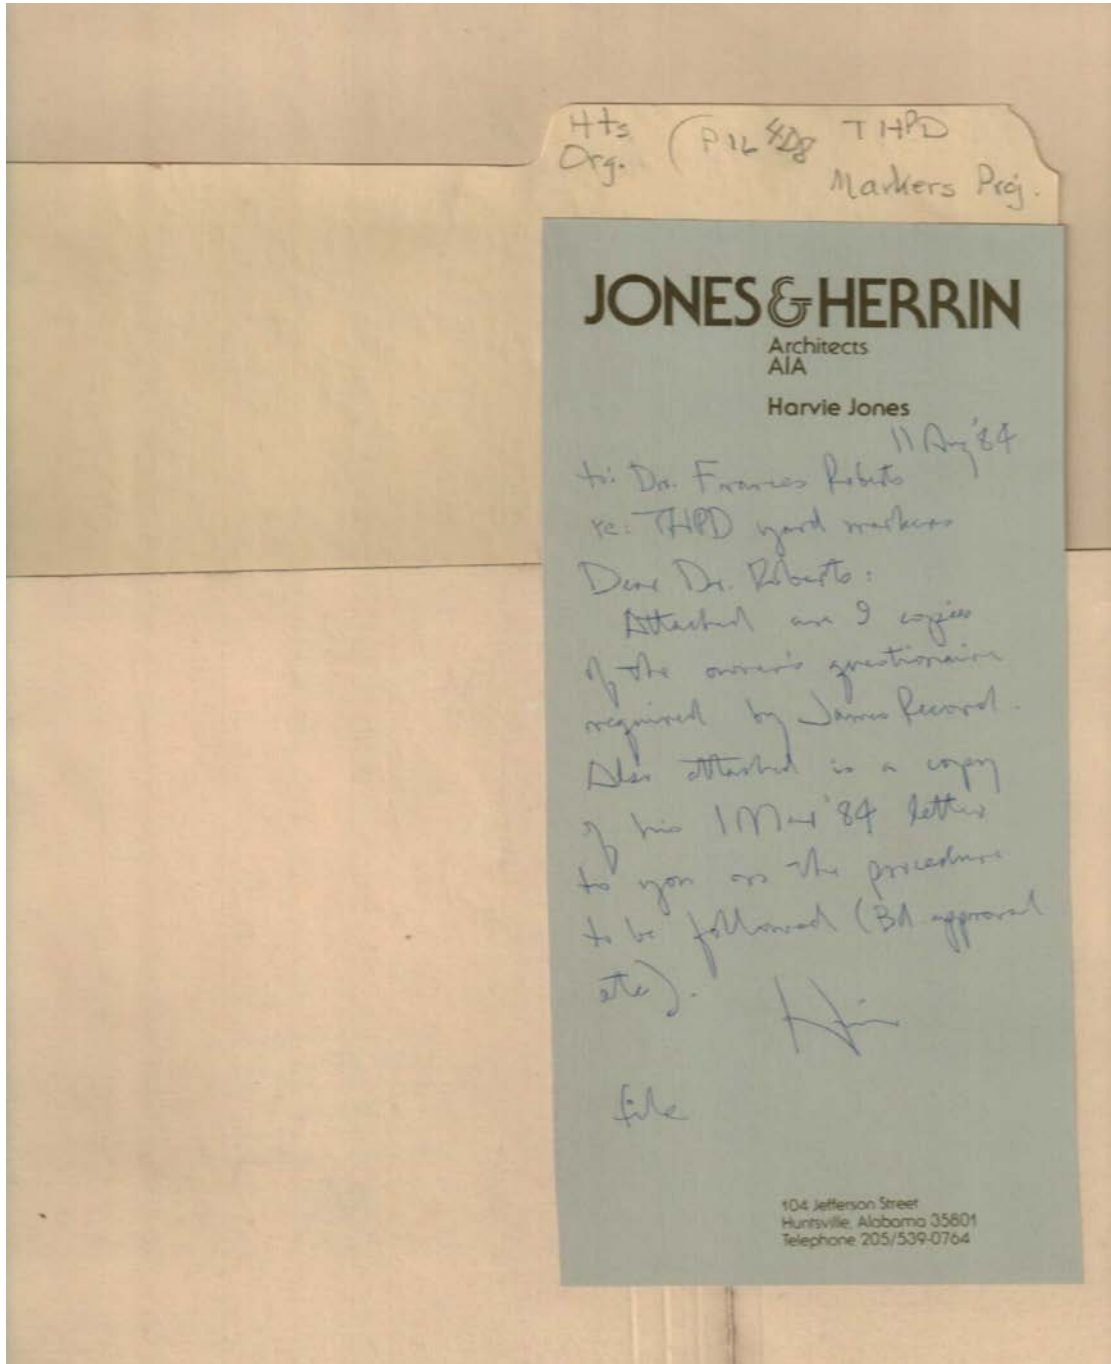 Hts
Org.
THPD
Markers Proj.
JONES & HERRIN
Architects
AIA
Harvie Jones
11 Aug '84
to: Dr. Frances Roberts
re: THPD yard markers
Dear Dr. Roberts:
Attached are 9 copies
of the owner's questionaire
required by James Record.
Also attached is a copy
of his 1 Mar '84 letter
to you on the procedure
to be followed (Bd. approval
etc).
file
104 Jefferson Street
Huntsville, Alabama 35801
Telephone 205/539-0764